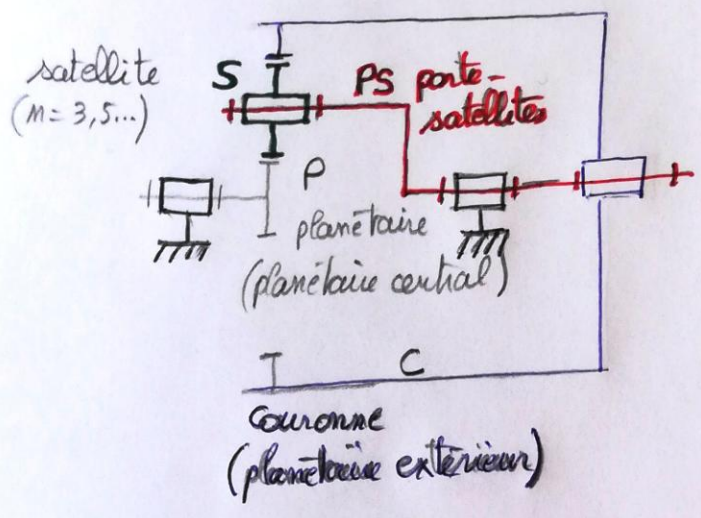 satellite
(m = 3,5...)
S
PS porte-
satellites
P
planétaire
(planétaire central)
C
couronne
(planétaire extérieur)